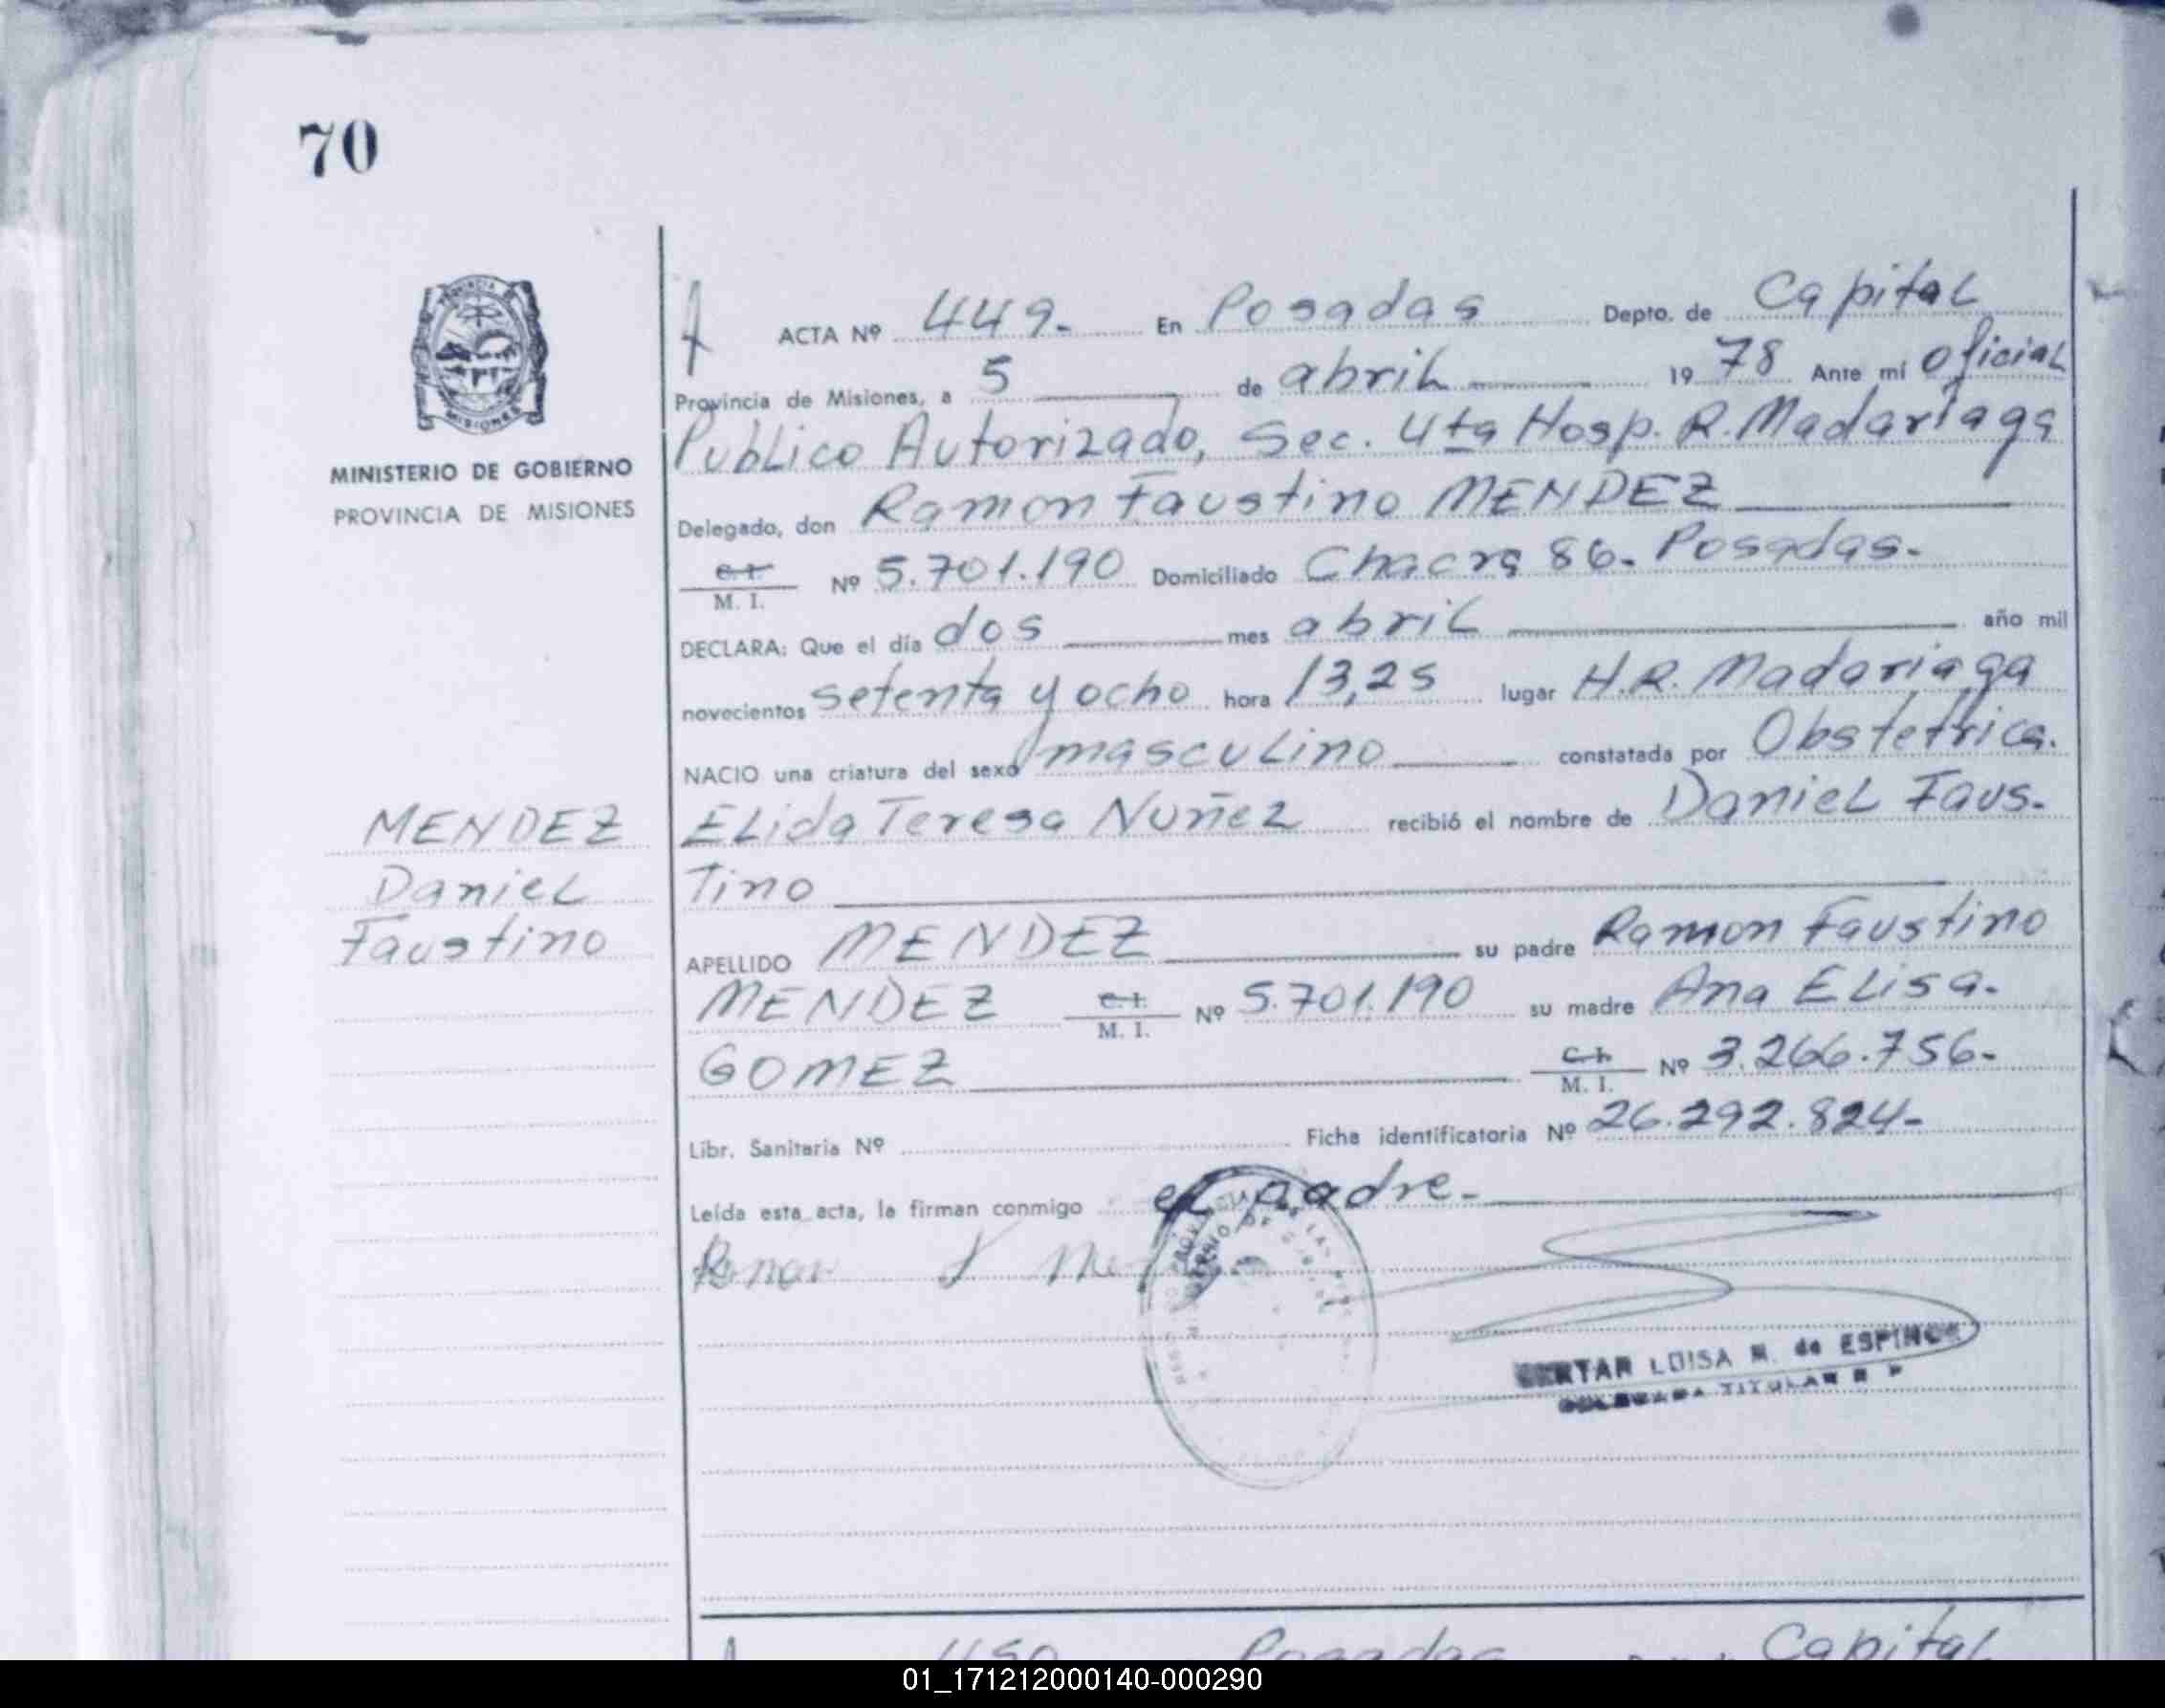 70
MINISTERIO DE GOBIERNO
PROVINCIA DE MISIONES
ACTA Nº 449- En Posadas Depto. de Capital
Provincia de Misiones, a 5 de abril 1978 Ante mí Oficial
Publico Autorizado, Sec. 4ta Hosp. R. Madariaga
Delegado, don Ramon Faustino MENDEZ
C. I.
M. I. Nº 5.701.190 Domiciliado Chacra 86- Posadas-
DECLARA: Que el día dos mes abril año mil
novecientos setenta y ocho hora 13,25 lugar H.R. Madariaga
NACIO una criatura del sexo masculino constatada por Obstetrica.
Elida Teresa Nuñez recibió el nombre de Daniel Faus-
Tino
APELLIDO MENDEZ su padre Ramon Faustino
MENDEZ C. I. M. I. Nº 5.701.190 su madre Ana Elisa-
GOMEZ C. I. M. I. Nº 3.266.756-
Libr. Sanitaria Nº Ficha identificatoria Nº 26.292.824-
Leída esta acta, la firman conmigo el padre-
MENDEZ
Daniel
Faustino
LUISA M. de ESPINOZA
TITULAR
450 Posadas Capital
01_171212000140-000290